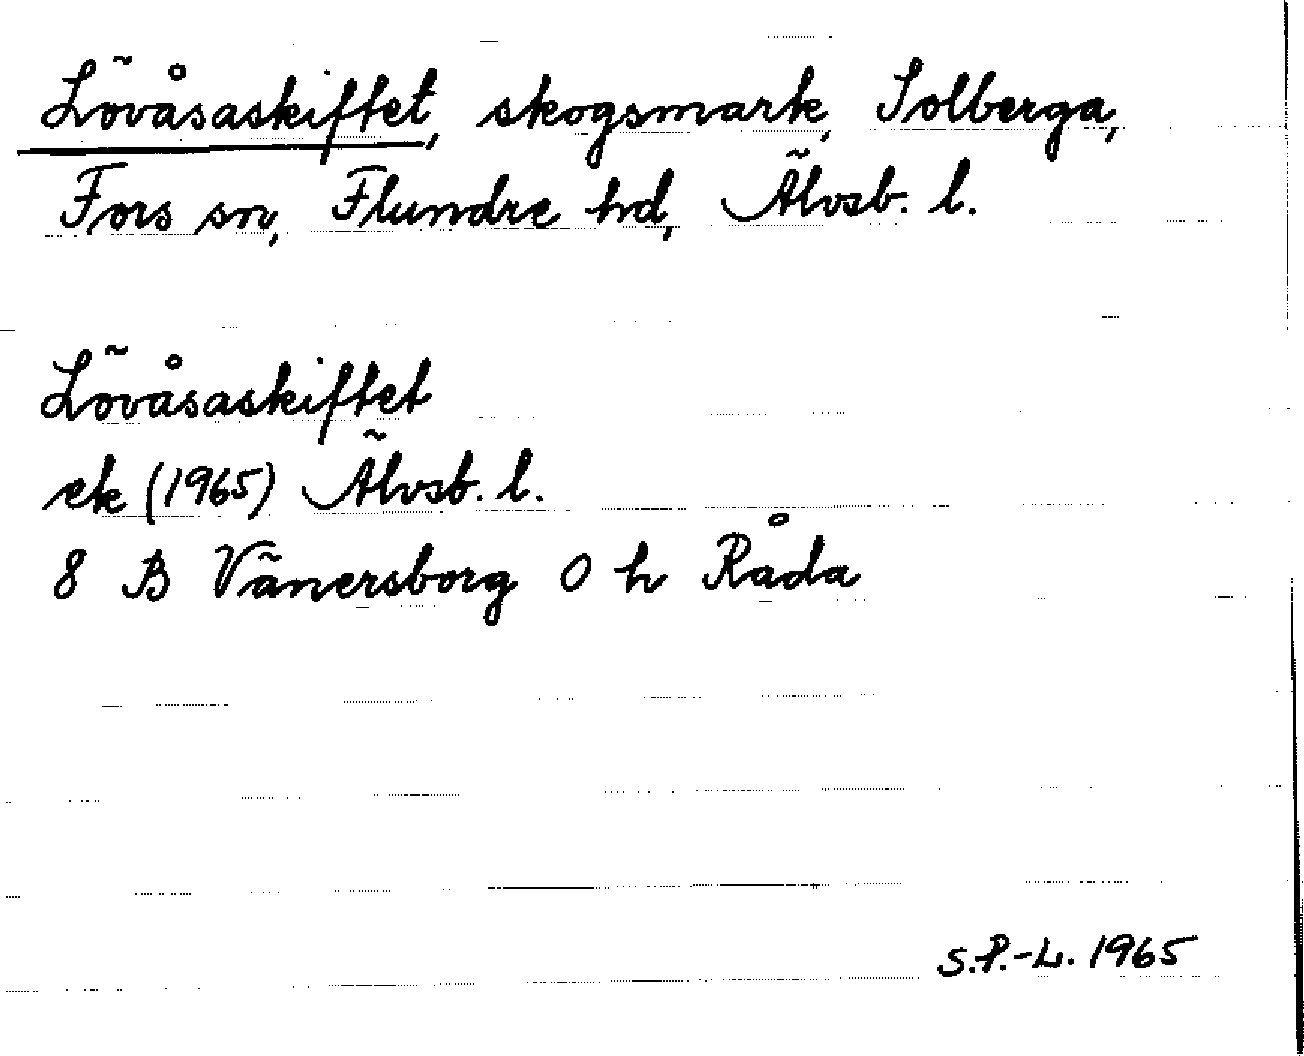 Lövåsaskiftet, skogsmark, Solberga,
Fors sn, Flundre hd, Älvsb. l.
Lövåsaskiftet
ek (1965) Älvsb. l.
8 B Vänersborg 0 h Råda
S.P.-L. 1965